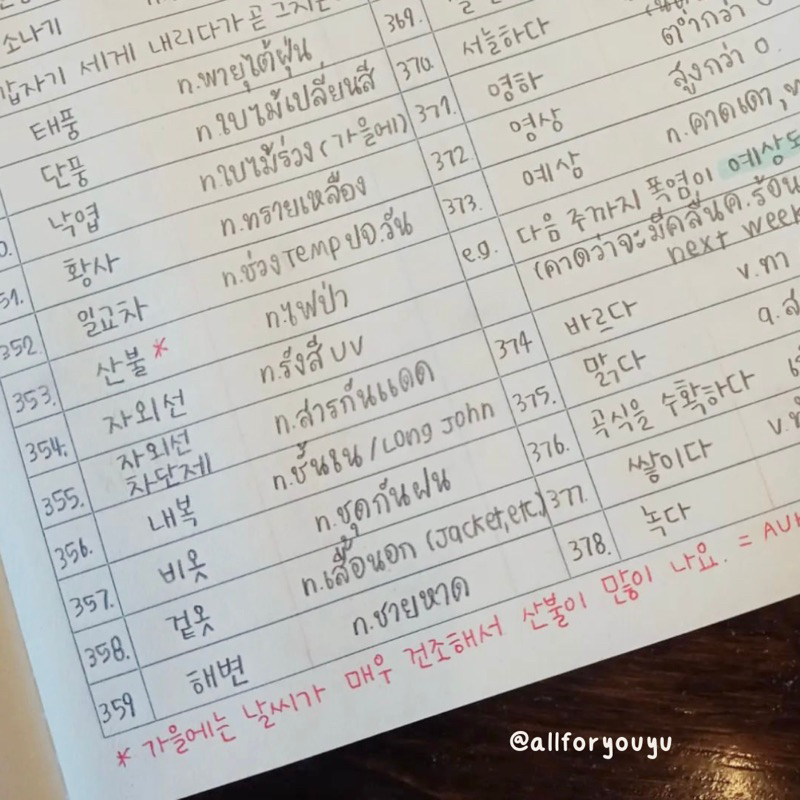 소나기
세게 내리다가 곧
태풍 n.พายุไต้ฝุ่น
단풍 n.ใบไม้เปลี่ยนสี
낙엽 n.ใบไม้ร่วง (가을에)
황사 n.ทรายเหลือง
352. 일교차 n.ช่วงTemp ปจ.วัน
353. 산불* n.ไฟป่า
354. 자외선 n.รังสี UV
355. 자외선
차단제 n.สารกันแดด
356. 내복 n.ชั้นใน / Long John
357. 비옷 n.ชุดกันฝน
358. 겉옷 n.เสื้อนอก (Jacket,etc.)
359 해변 n.ชายหาด
369.
370. 서늘하다
371. 영하 ต่ำกว่า 0
372 영상 สูงกว่า 0.
373. 예상 n.คาดเดา,
e.g. 다음 주까지 폭염이 예상되
(คาดว่าจะมีคลื่นค.ร้อน
next week
374 바르다 v.ทา
375. 맑다 a.
376. 곡식을 수확하다
377. 쌓이다
378. 녹다
* 가을에는 날씨가 매우 건조해서 산불이 많이 나요. =
@allforyouyu